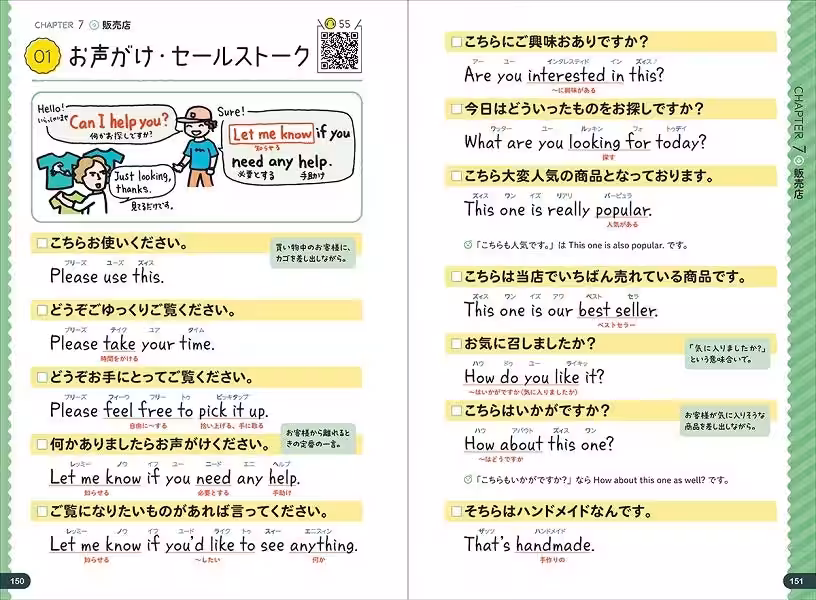 CHAPTER 7 販売店
01 お声がけ・セールストーク
55
Hello!
いらっしゃいませ
Can I help you?
何かお探しですか?
Sure!
Let me know if you
知らせる
need any help.
必要とする 手助け
Just looking,
thanks.
見てるだけです。
こちらお使いください。
買い物中のお客様に、
カゴを差し出しながら。
プリーズ ユーズ ズィス
Please use this.
どうぞごゆっくりご覧ください。
プリーズ テイク ユア タイム
Please take your time.
時間をかける
どうぞお手にとってご覧ください。
プリーズ フィーゥ フリー トゥ ピッキタップ
Please feel free to pick it up.
自由に〜する 拾い上げる、手に取る
何かありましたらお声がけください。
お客様から離れると
きの定番の一言。
レッミー ノウ イフ ユー ニード エニ ヘルプ
Let me know if you need any help.
知らせる 必要とする 手助け
ご覧になりたいものがあれば言ってください。
レッミー ノウ イフ ユード ライク トゥ スィー エニスィン
Let me know if you'd like to see anything.
知らせる 〜したい 何か
150
こちらにご興味おありですか?
アー ユー インタレスティド イン ズィス
Are you interested in this?
〜に興味がある
今日はどういったものをお探しですか?
ワッター ユー ルッキン フォ トゥデイ
What are you looking for today?
探す
こちら大変人気の商品となっております。
ズィス ワン イズ リアリ パーピュラ
This one is really popular.
人気がある
「こちらも人気です。」は This one is also popular. です。
こちらは当店でいちばん売れている商品です。
ズィス ワン イズ アワ ベスト セラ
This one is our best seller.
ベストセラー
お気に召しましたか?
「気に入りましたか?」
という意味合いで。
ハウ ドゥ ユー ライキッ
How do you like it?
〜はいかがですか(気に入りましたか)
こちらはいかがですか?
お客様が気に入りそうな
商品を差し出しながら。
ハウ アバウト ズィス ワン
How about this one?
〜はどうですか
「こちらもいかがですか?」なら How about this one as well? です。
そちらはハンドメイドなんです。
ザッツ ハンドメイド
That's handmade.
手作りの
CHAPTER 7 販売店
151